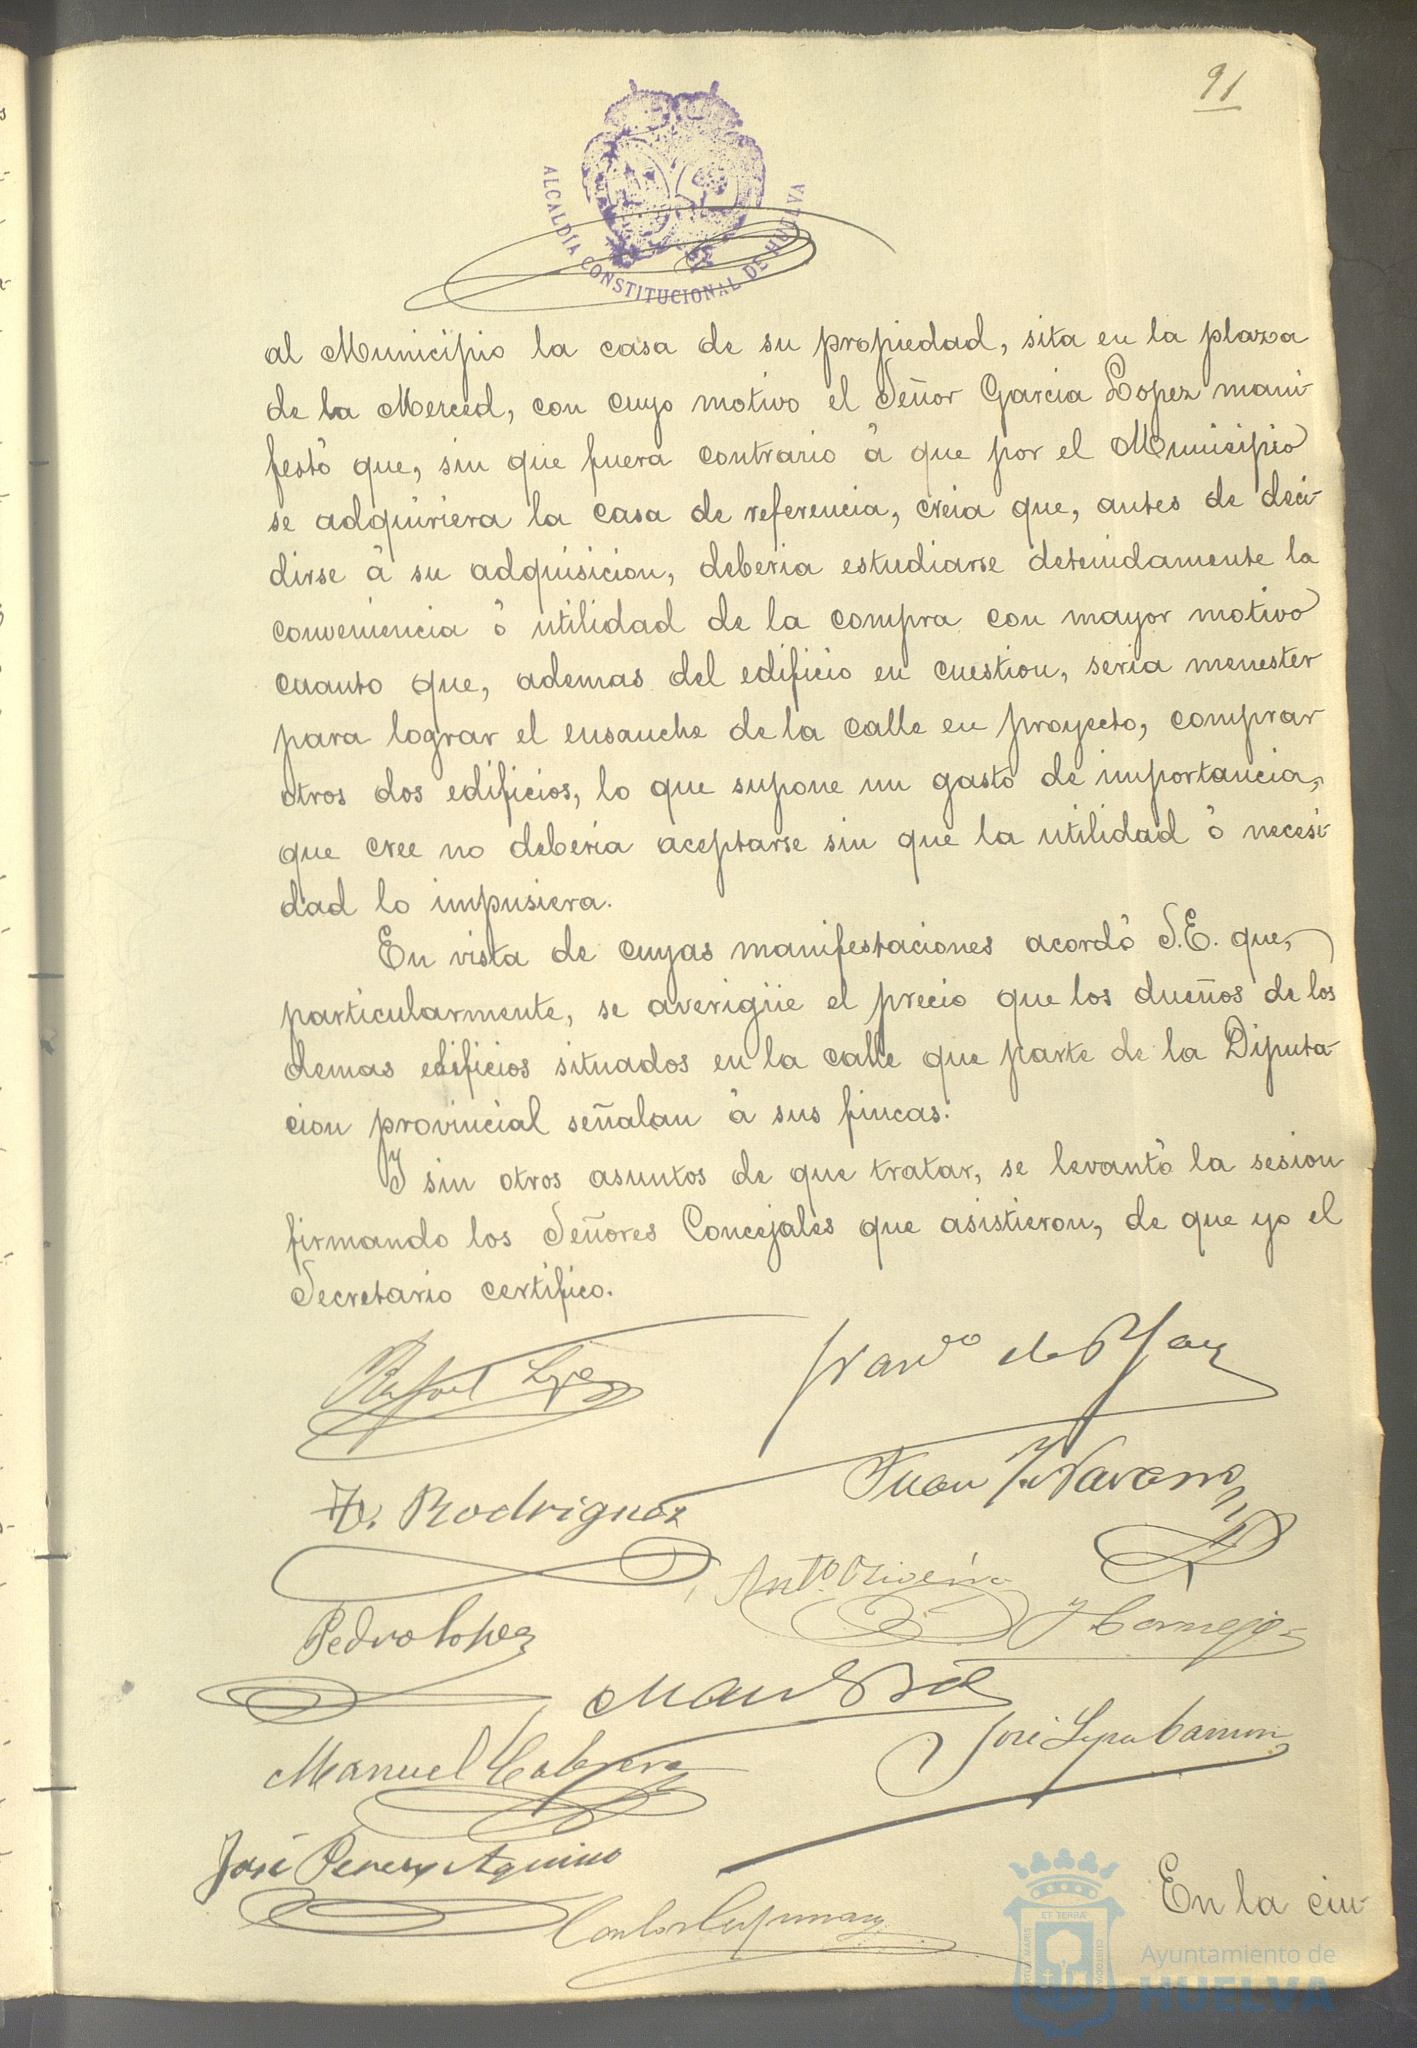 91
ALCALDÍA CONSTITUCIONAL DE HUELVA
al Municipio la casa de su propiedad, sita en la plaza
de la Merced, con cuyo motivo el Señor Garcia Lopez mani-
festó que, sin que fuera contrario á que por el Municipio
se adquiriera la casa de referencia, creia que, antes de deci-
dirse á su adquisicion, deberia estudiarse detenidamente la
conveniencia ó utilidad de la compra con mayor motivo
cuanto que, ademas del edificio en cuestion, seria menester
para lograr el ensanche de la calle en proyecto, comprar
otros dos edificios, lo que supone un gasto de importancia,
que cree no deberia aceptarse sin que la utilidad ó necesi-
dad lo impusiera.
En vista de cuyas manifestaciones acordó S.E. que,
particularmente, se averigüe el precio que los dueños de los
demas edificios situados en la calle que parte de la Diputa-
cion provincial señalan á sus fincas.
Y sin otros asuntos de que tratar, se levantó la sesion
firmando los Señores Concejales que asistieron, de que yo el
Secretario certifico.
Rafael Lopez
Franco de P
Rodriguez
Juan Navarro
Anto Oliveira
Pedro Lopez
Cornejo
Manuel Cabrera
José
José Perez y Aquino
Carlos
En la ciu-
ET TERRÆ
Ayuntamiento de
HUELVA